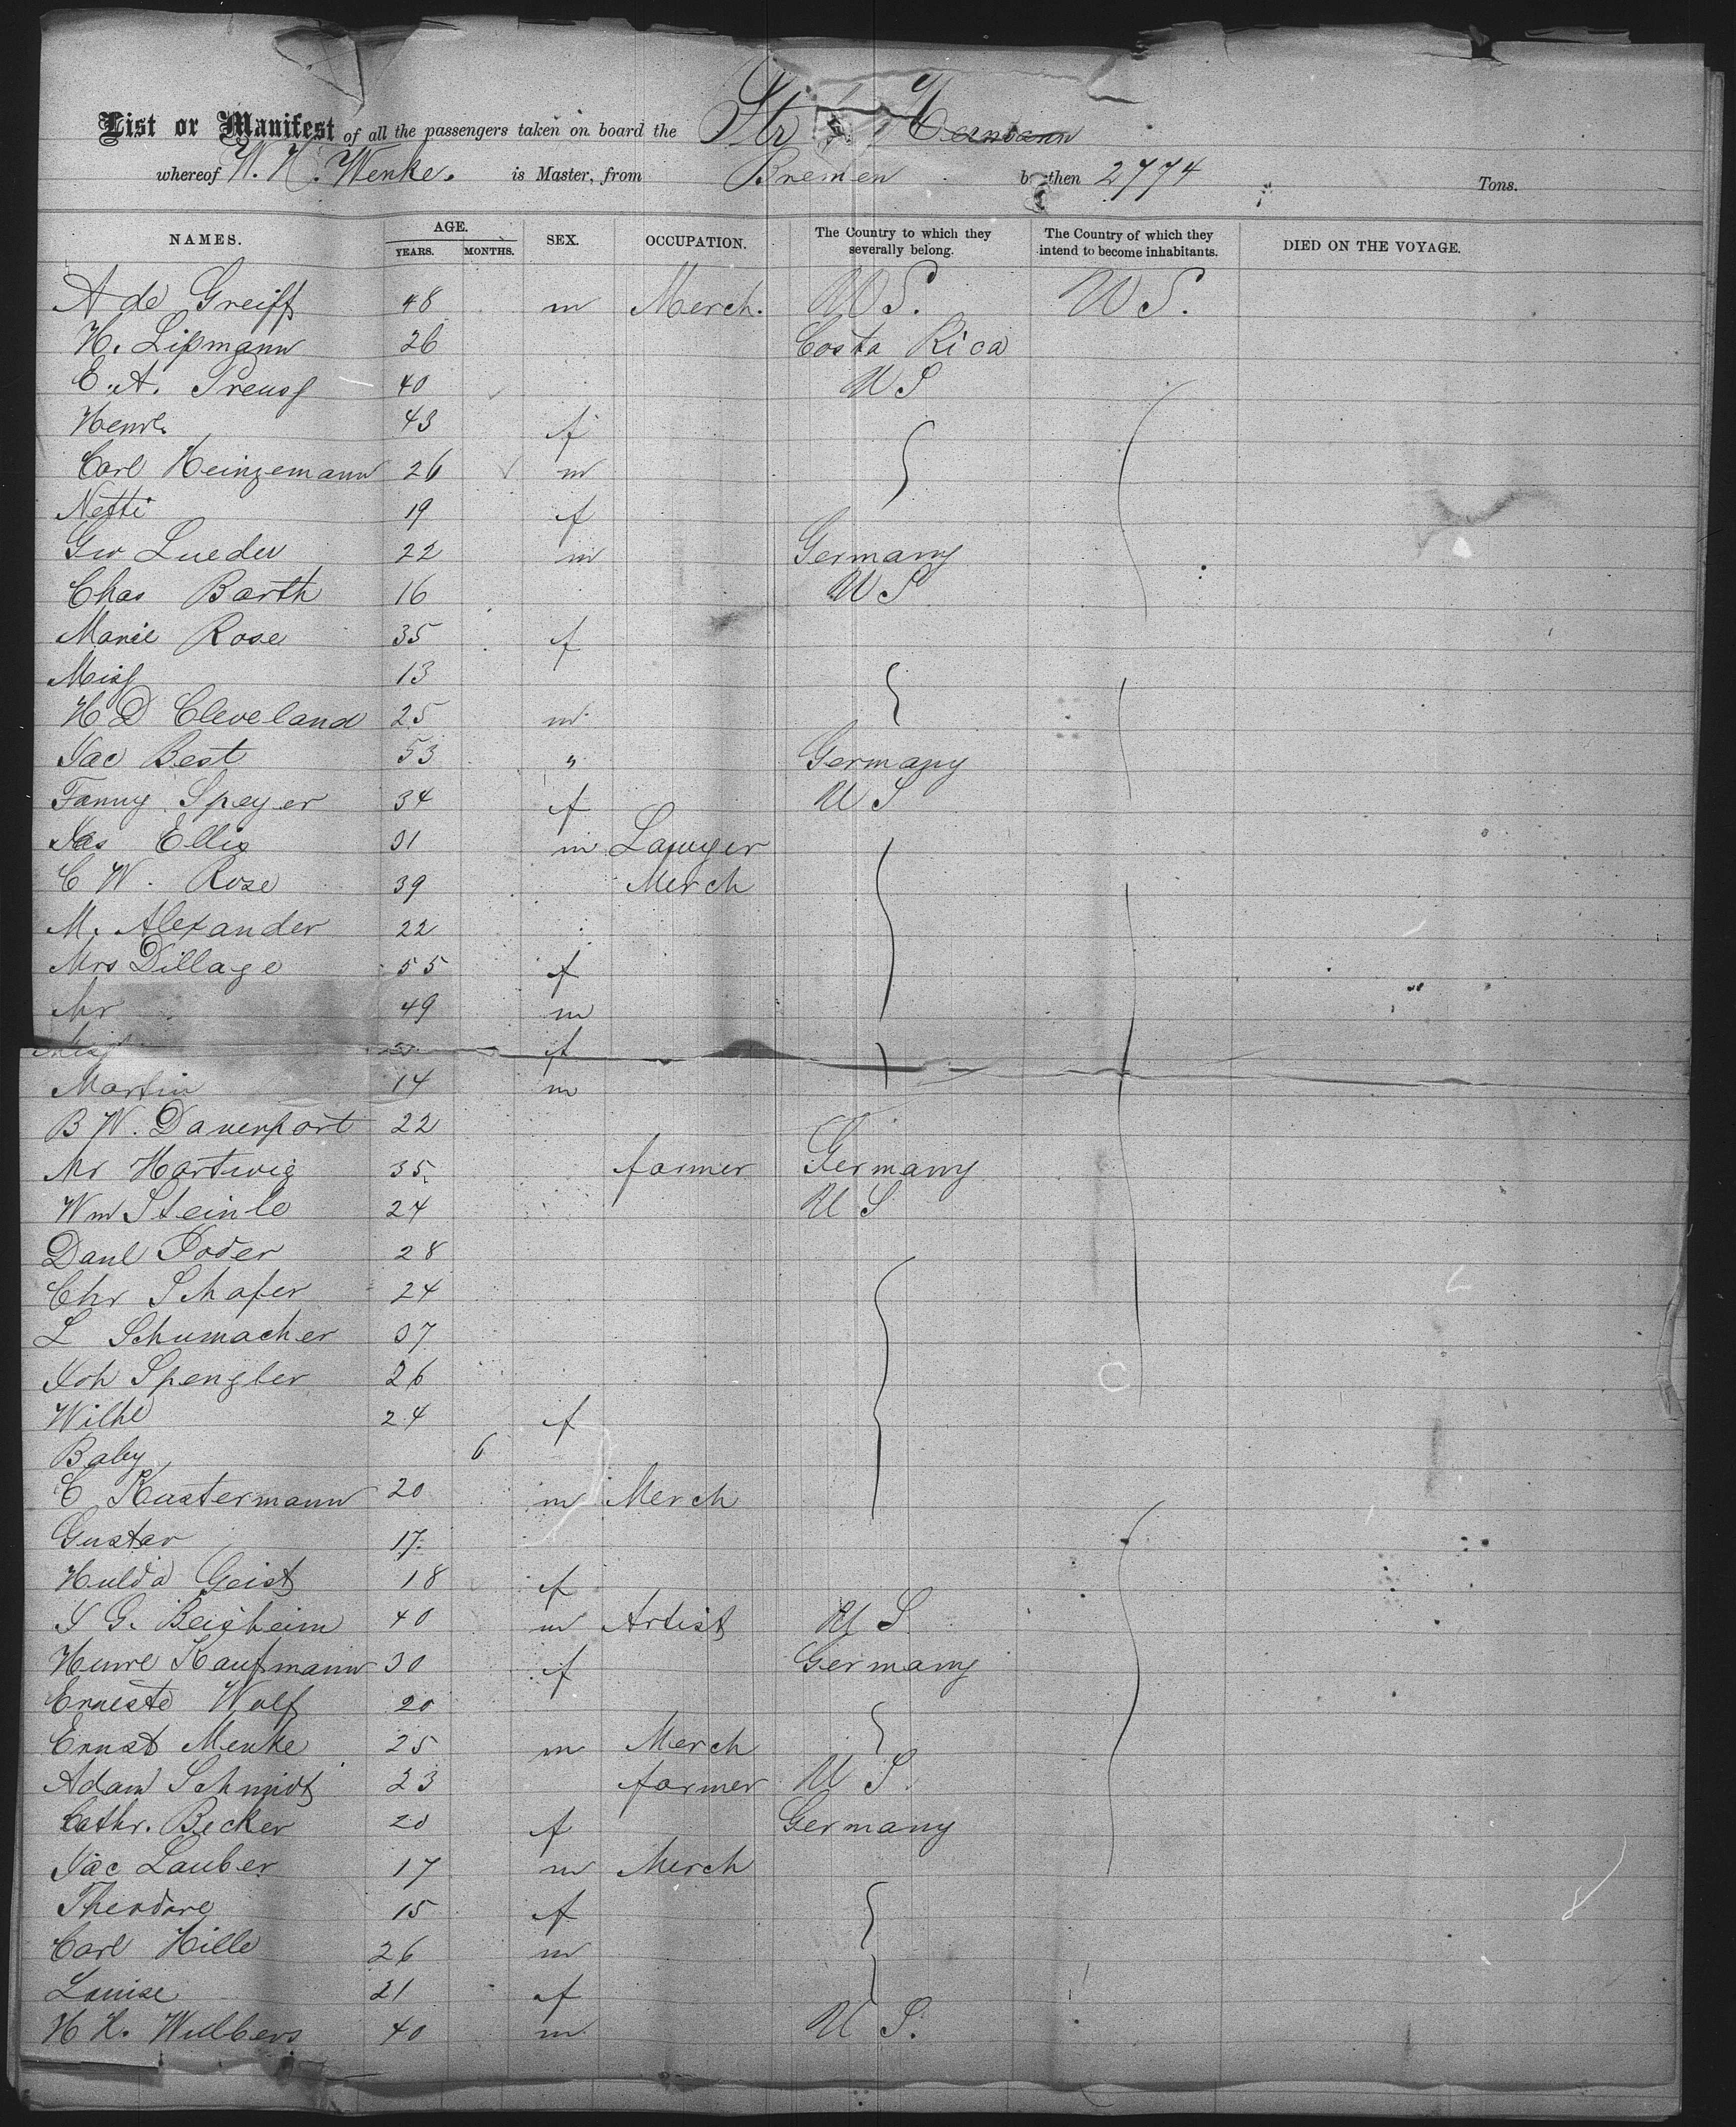 List or Manifest of all the passengers taken on board the Str Hermann
whereof W. H. Wenke. is Master, from Bremen burthen 2774 Tons.
NAMES. AGE. YEARS. MONTHS. SEX. OCCUPATION. The Country to which they severally belong. The Country of which they intend to become inhabitants. DIED ON THE VOYAGE.
A de Greiff 48 m Merch. U S. U S.
H. Lipmann 26 Costa Rica
E. A. Preuss 40 U S
Henre 43 f
Carl Heinzemann 26 m
Netti 19 f
Geo Lueder 22 m Germany
Chas Barth 16 U S
Marie Rose 35 f
Miss 13
H D Cleveland 25 m
Jac Best 53 " Germany
Fanny Speyer 34 f U S
Jas Ellis 31 m Lawyer
C W. Rose 39 Merch
M. Alexander 22
Mrs Dillage 55 f
Mr 49 m
Miss f
Martin 14 m
B W. Davenport 22
Mr Hartwig 35 farmer Germany
Wm Steinle 24 U S
Danl Yoder 28
Chr Schafer 24
L Schumacher 37
Joh Spengler 26
Wilhe 24 f
Baby 6
C Kustermann 20 m Merch
Gustav 17
Hulda Geist 18 f
S G. Beisheim 40 m Artist U S.
Henre Kaufmann 30 f Germany
Erneste Wolf 20
Ernst Menke 25 m Merch
Adam Schmidt 23 farmer U S.
Cathr. Becker 20 f Germany
Jac Lauber 17 m Merch
Theodore 15 f
Carl Hille 26 m
Louise 21 f
H H. Wulbers 40 m U S.